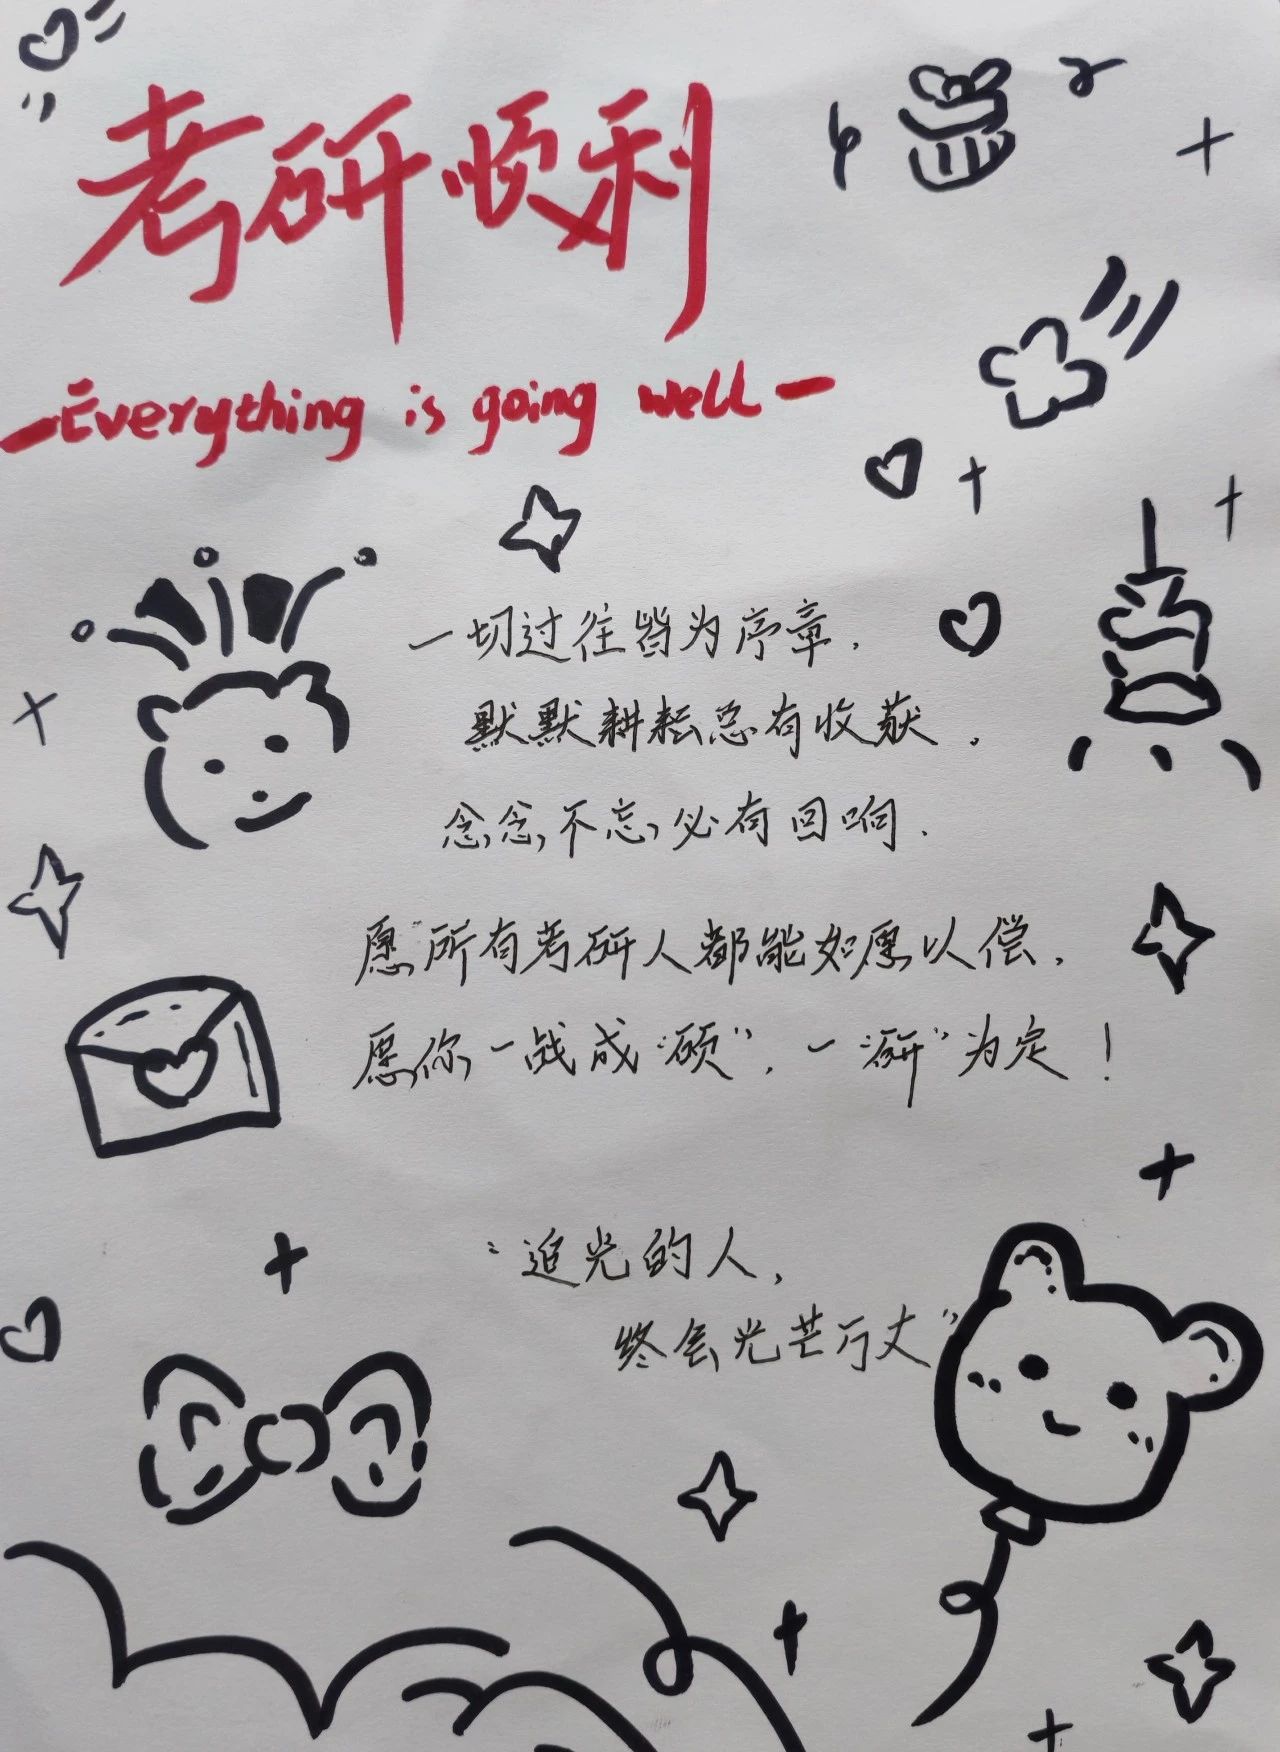 考研顺利
-Everything is going well-
一切过往皆为序章.
默默耕耘总有收获.
念念不忘必有回响.
愿所有考研人都能如愿以偿.
愿你一战成"硕".一"研"为定!
"追光的人,
终会光芒万丈"